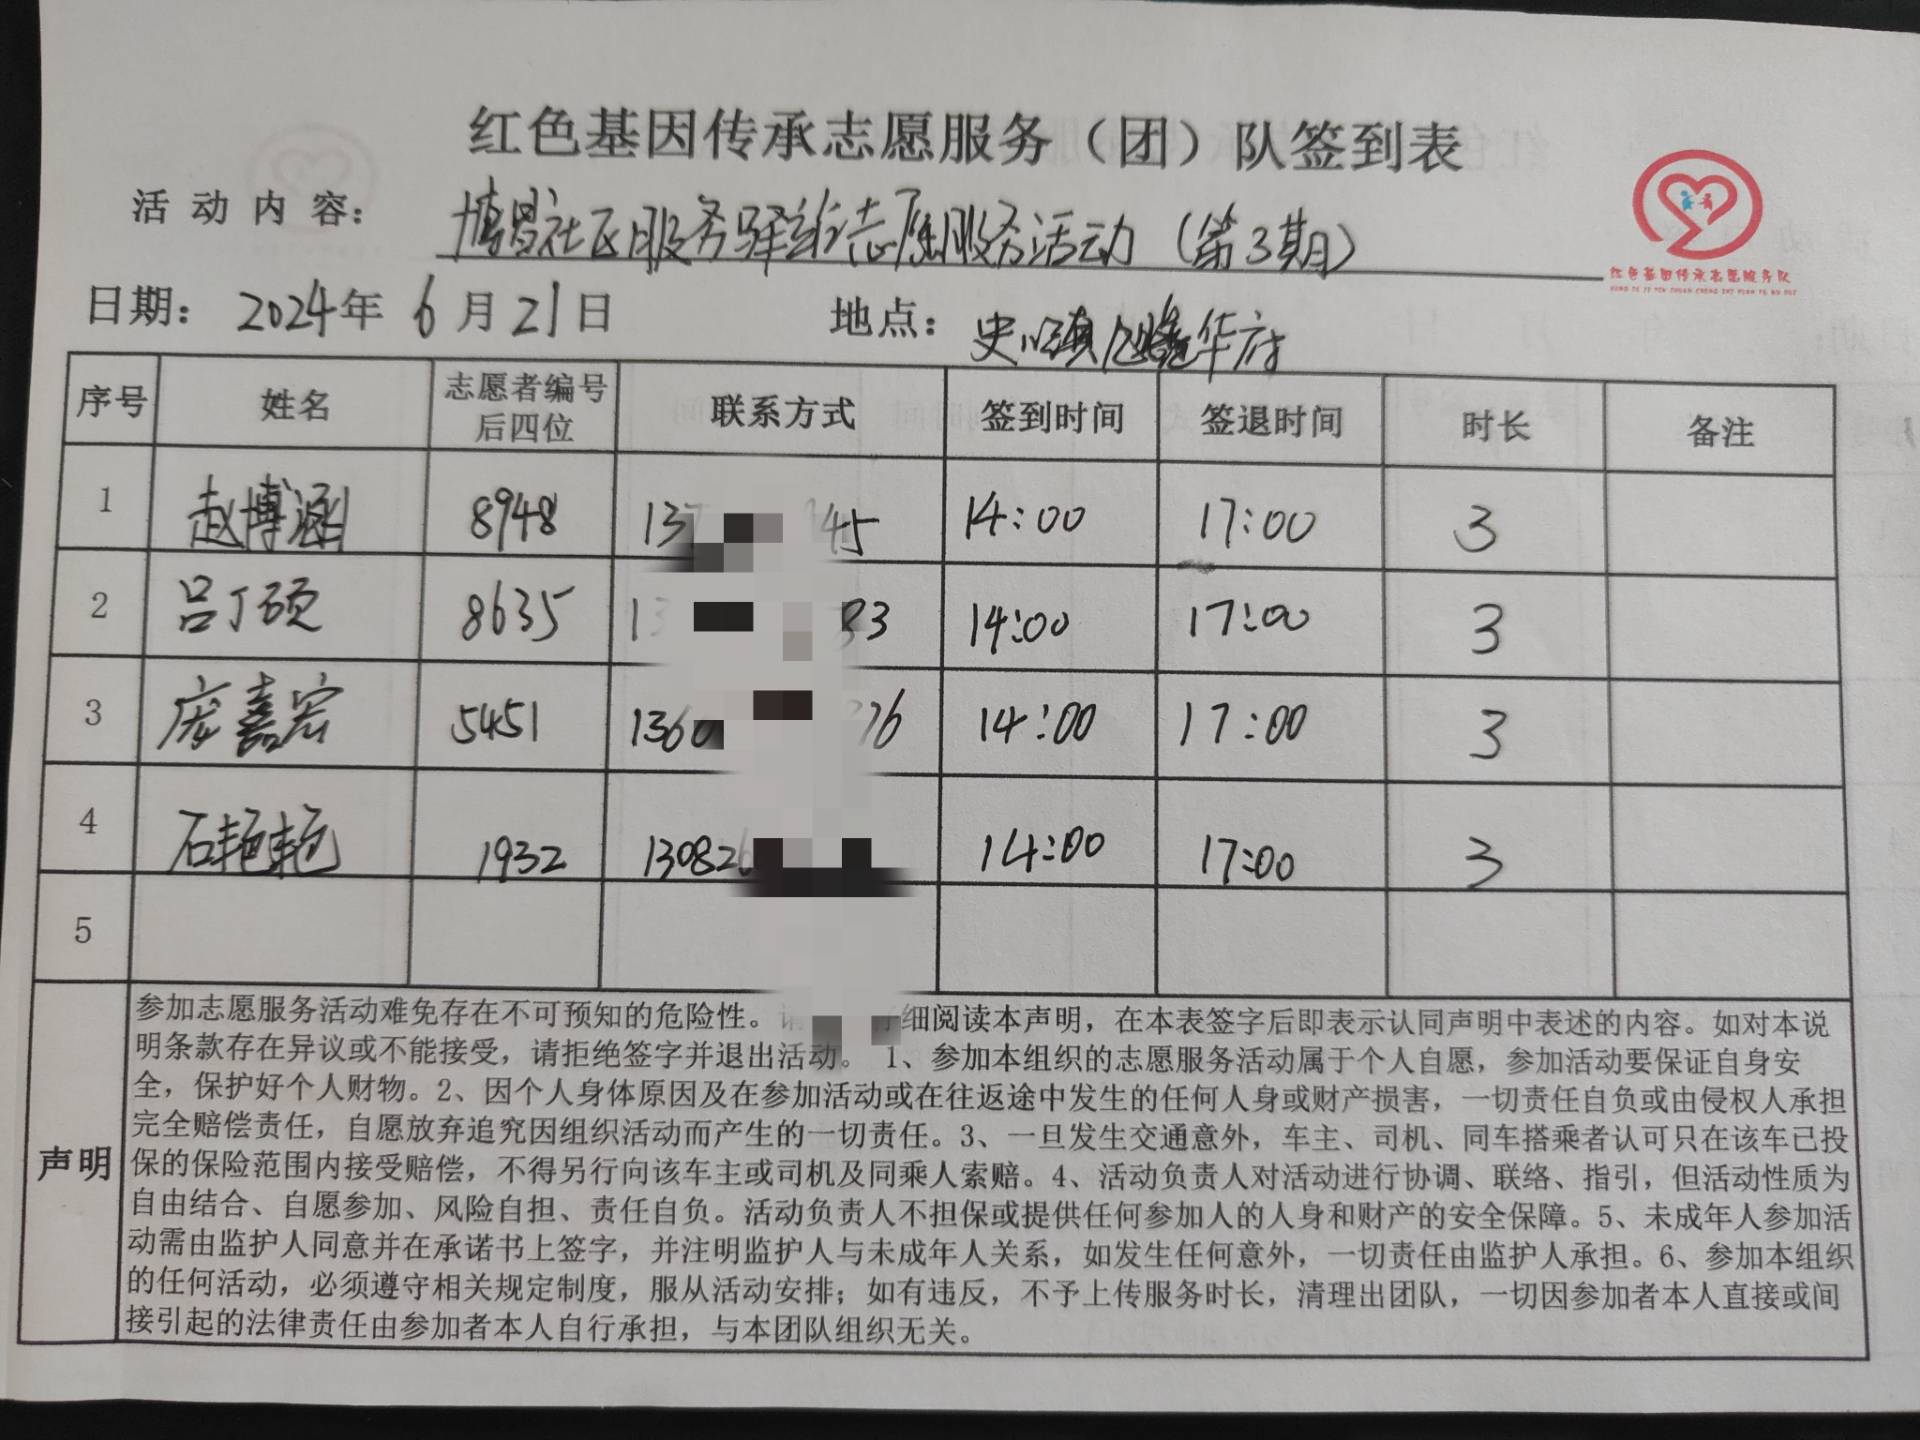 红色基因传承志愿服务（团）队签到表
活动内容：博昌社区服务驿站志愿服务活动（第3期）
红色基因传承志愿服务队
HONG SE JI YIN CHUAN CHENG ZHI YUAN FU WU DUI
日期：2024年6月21日 地点：华府
序号 姓名 志愿者编号后四位 联系方式 签到时间 签退时间 时长 备注
1 赵博涵 8948 13 45 14:00 17:00 3
2 吕丁硕 8635 13 83 14:00 17:00 3
3 庞嘉宏 5451 136 76 14:00 17:00 3
4 石艳艳 1932 13082 14:00 17:00 3
5
声明
参加志愿服务活动难免存在不可预知的危险性。细阅读本声明，在本表签字后即表示认同声明中表述的内容。如对本说
明条款存在异议或不能接受，请拒绝签字并退出活动。 1、参加本组织的志愿服务活动属于个人自愿，参加活动要保证自身安
全，保护好个人财物。2、因个人身体原因及在参加活动或在往返途中发生的任何人身或财产损害，一切责任自负或由侵权人承担
完全赔偿责任，自愿放弃追究因组织活动而产生的一切责任。3、一旦发生交通意外，车主、司机、同车搭乘者认可只在该车已投
保的保险范围内接受赔偿，不得另行向该车主或司机及同乘人索赔。4、活动负责人对活动进行协调、联络、指引，但活动性质为
自由结合、自愿参加、风险自担、责任自负。活动负责人不担保或提供任何参加人的人身和财产的安全保障。5、未成年人参加活
动需由监护人同意并在承诺书上签字，并注明监护人与未成年人关系，如发生任何意外，一切责任由监护人承担。6、参加本组织
的任何活动，必须遵守相关规定制度，服从活动安排；如有违反，不予上传服务时长，清理出团队，一切因参加者本人直接或间
接引起的法律责任由参加者本人自行承担，与本团队组织无关。